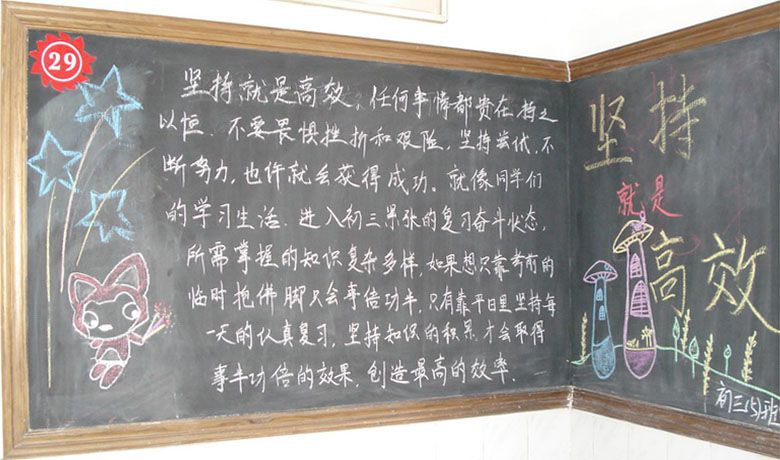 29
坚持就是高效，任何事情都贵在持之
以恒．不要畏惧挫折和艰险，坚持尝试，不
断努力，也许就会获得成功。就像同学们
的学习生活．进入初三紧张的复习奋斗状态，
所需掌握的知识复杂多样，如果想只靠考前的
临时抱佛脚只会事倍功半，只有靠平日里坚持每
一天的认真复习，坚持知识的积累，才会取得
事半功倍的效果，创造最高的效率．
坚持
就是
高效
初三(5)班